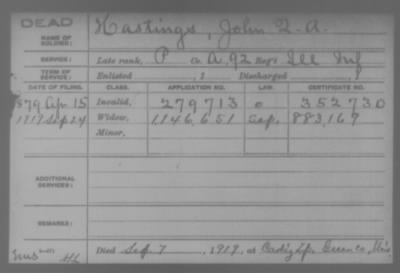 DEAD
NAME OF SOLDIER: Hastings, John Q. A.
SERVICE: Late rank, P Co. A, 92 Reg't Ill Inf
TERM OF SERVICE: Enlisted , 1 Discharged , 1
DATE OF FILING. CLASS. APPLICATION NO. LAW. CERTIFICATE NO.
1879 Apr. 15 Invalid, 279713 352730
1919 Sep 24 Widow, 1146,651 Sep. 883,167
Minor,
ADDITIONAL SERVICES:
REMARKS:
Died Sep. 7, 1919, at Cadiz Tp. Green Co, Wis.